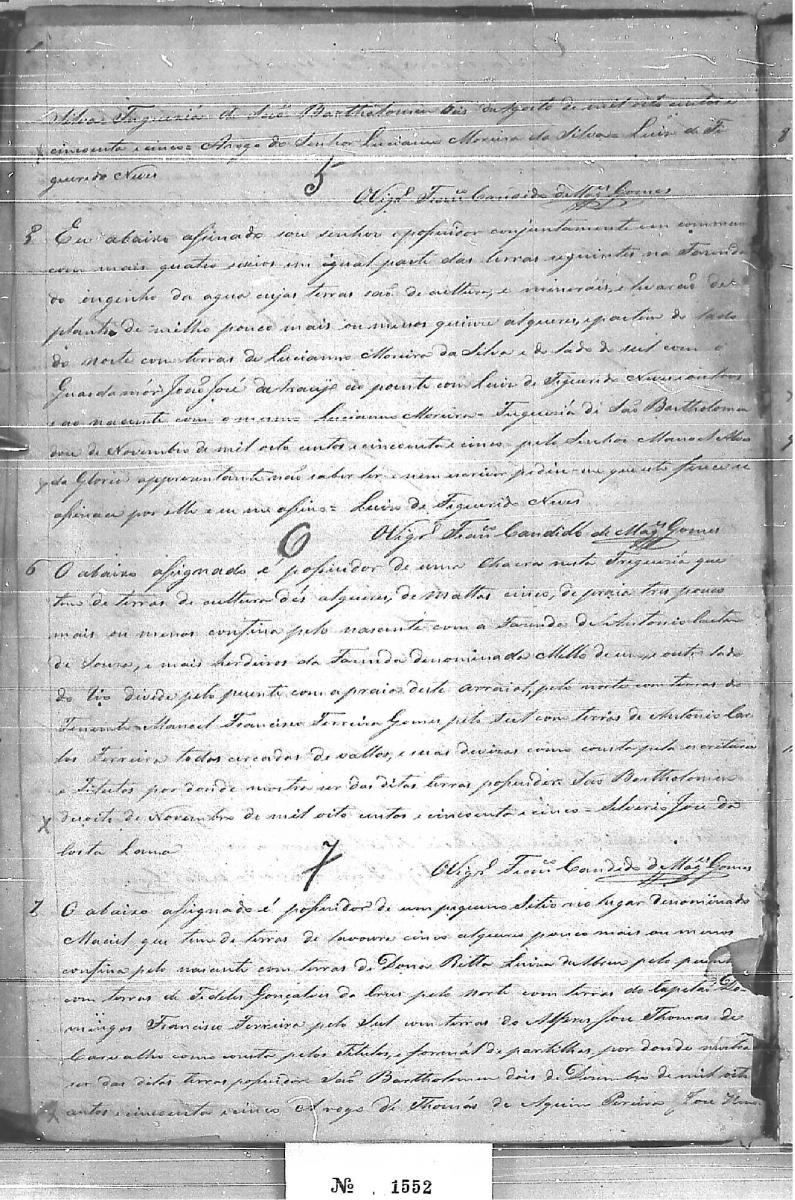 Silva Freguezia de São Bartholomeu de Agosto de mil oito centos e
cincoenta e cinco = Arogo do Senhor Lucianno Moreira da Silva = Luis de Fi
gueiredo Neves
5
O Vigr.º Fran.co Candido de Mag.es Gomes
Eu abaixo asinado sou senhor e posuidor conjuntamente em commum
com mais quatro socios em igual parte das terras seguintes na Fazenda
do ingenho da agua cujas terras são de cultura, e mineráis, e levarão de
planta de milho pouco mais ou menos quinze alqueres, e partem do lado
do norte com terras de Lucianno Moreira da Silva e do lado do sul com o
Guarda mór João José de Araujo ao poente com Luis de Figueredo Neves e outros
e ao nascente com o mesmo Lucianno Moreira = Freguezia de São Bartholomeu
de Novembro de mil oito centos e cincoenta e cinco = pelo Senhor Manoel
da Gloria appresentante não saber ler e nem escrever pediu-me que este fizece e
asinace por elle e eu me asino = Luis de Figueredo Neves
6
O Vigr.º Fran.co Candido de Mag.es Gomes
6 O abaixo assignado é possuidor de uma Chacra nesta Freguezia que
tem de terras de cultura dés alqueres, de mattos cinco, de praia tres pouco
mais ou menos confina pelo nascente com a Fazenda de Antonio Caetano
de Souza, e mais herdeiros da Fazenda denominada Mello de um, e outro lado
do Rio divide pelo puente com a praia deste arraial, pelo norte com terras do
Tenente Manoel Francisco Ferreira Gomes pelo Sul com terras de Antonio Car
los Ferreira todos cercados de vallos, e suas devizas como consta pela escritura
e Titulos por donde mostra ser das ditas terras possuidor São Bartholomeu
dezoito de Novembro de mil oito centos e cincoenta e cinco = Silverio Jose da
Costa Lana
7
O Vigr.º Fran.co Candido de Mag.es Gomes
7 O abaixo assignado é possuidor de um pequeno Sitio no lugar denominado
Maciel que tem de terras de lavoura cinco alqueres pouco mais ou menos
confina pelo nascente com terras de Dona Ritta Luiza de Abreu pelo puente
com terras de Fidelis Gonçalves da Cruz pelo Norte com terras do Capitão Do
mingos Francisco Ferreira pelo Sul com terras do Alferes Jose Thomas de
Carvalho como consta pelos Titulos, e formál de partilhas, por donde mostra
ser das ditas terras possuidor São Bartholomeu dois de Dezembro de mil oito
centos e cincoenta e cinco Arogo de Thomás de Aquino Pereira Jose
Nº 1552